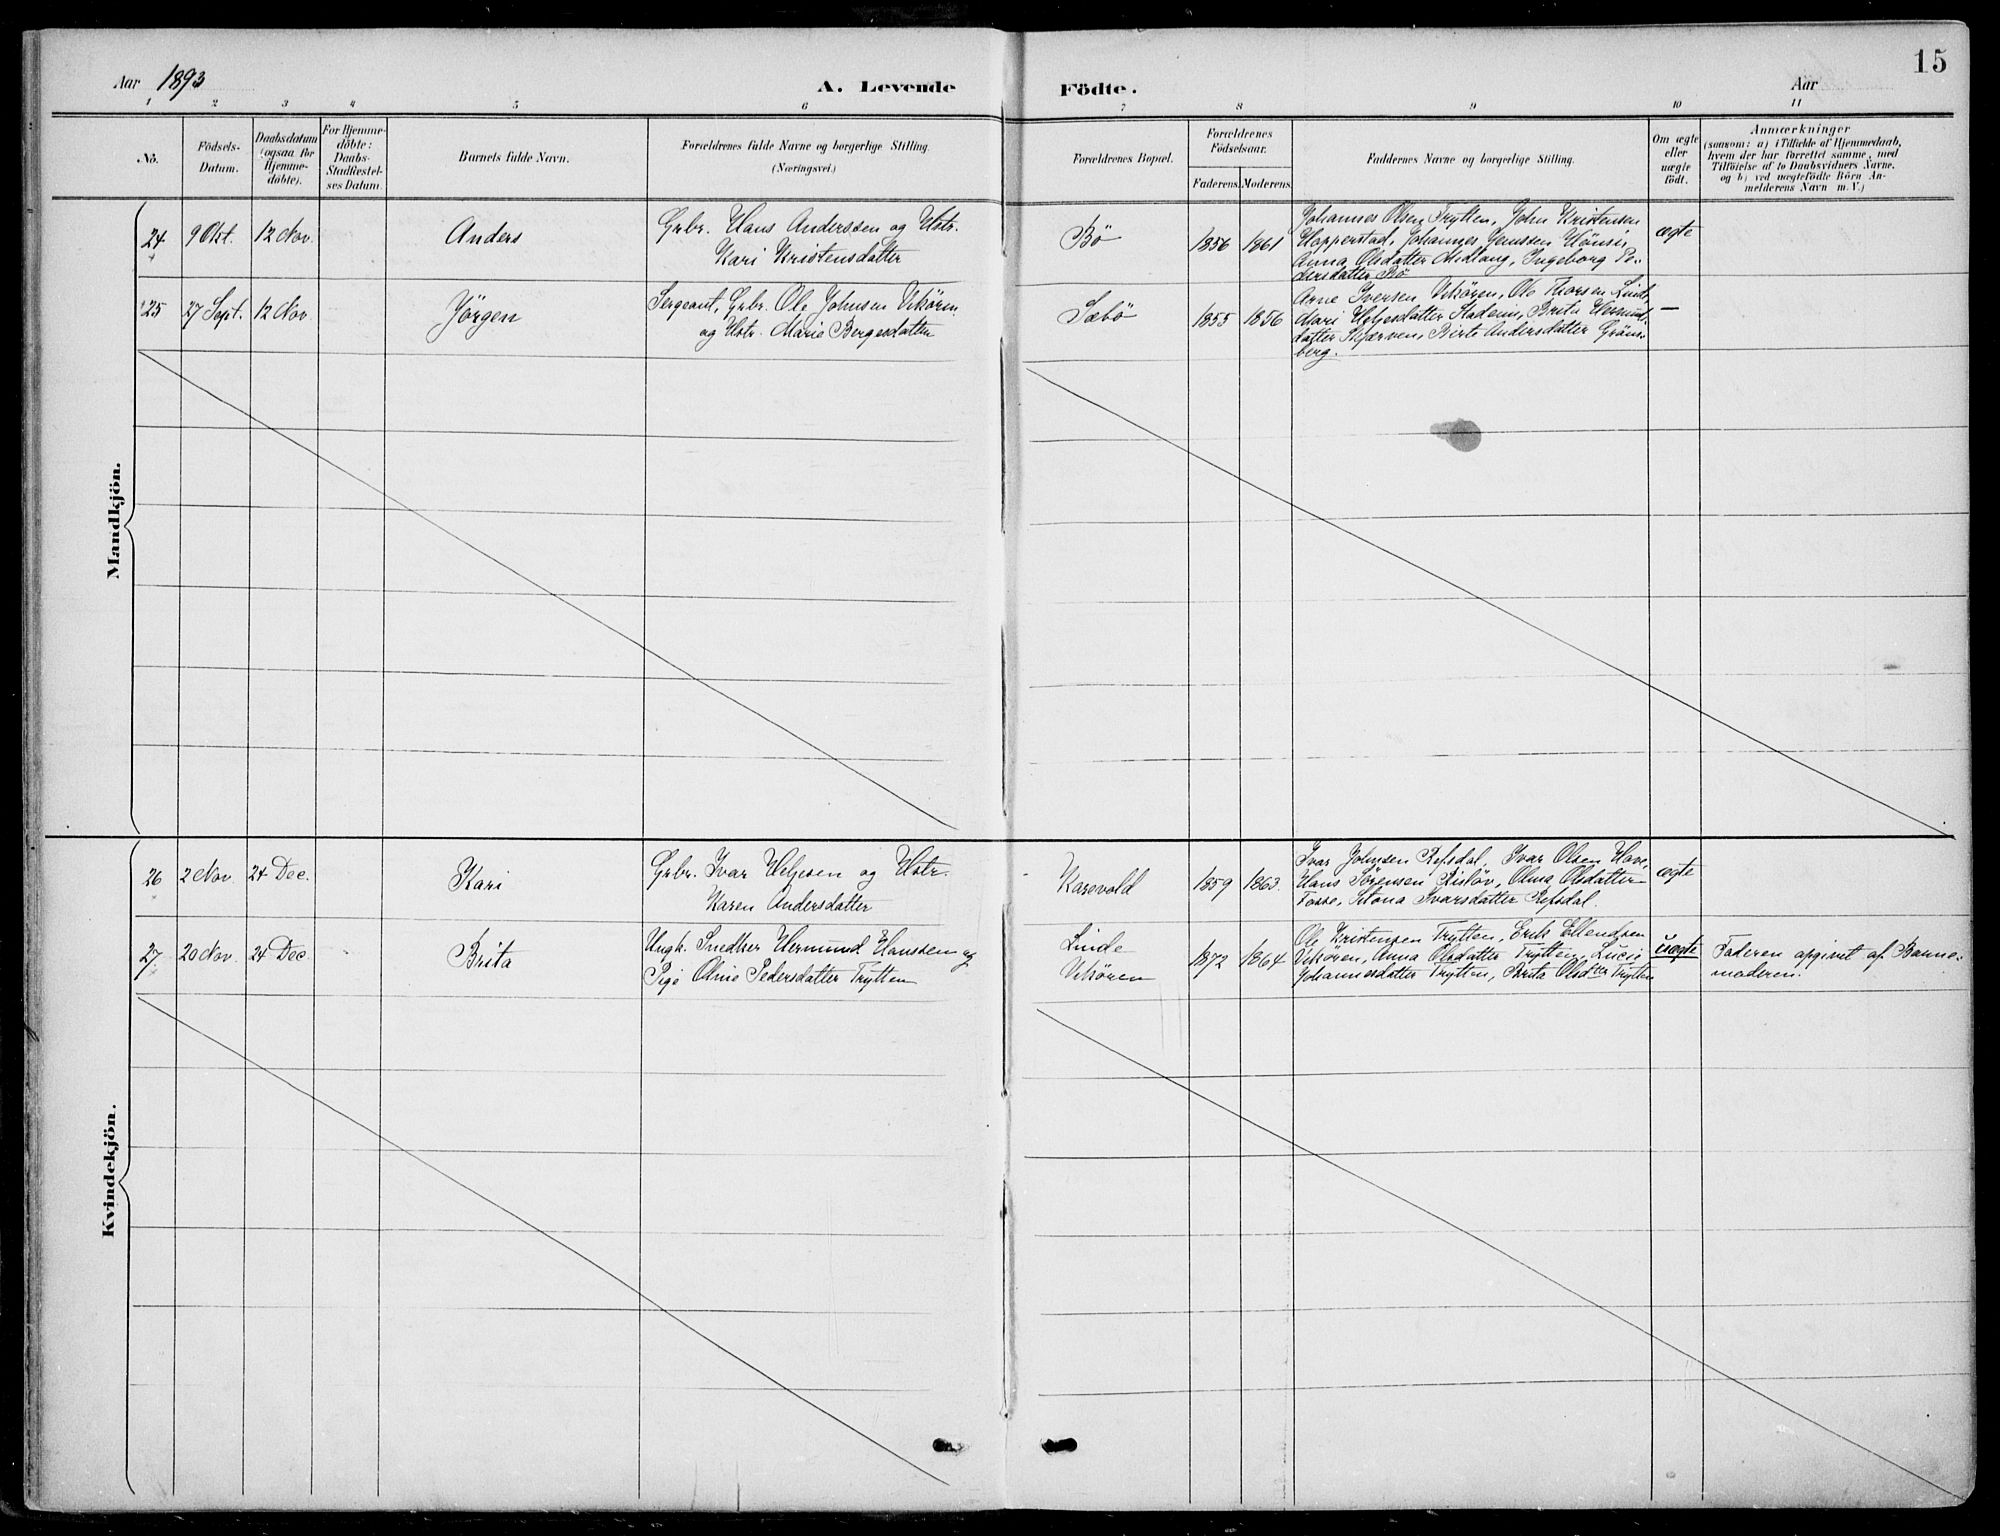 15
Aar 1893 A. Levende Födte. Aar
1 2 3 4 5 6 7 8 9 10 11
No.
Födsels-
Datum.
Daabsdatum
(ogsaa for
Hjemme-
döbte).
For Hjemme-
döbte:
Daabs-
Stadfæstel-
ses Datum.
Barnets fulde Navn.
Forældrenes fulde Navne og borgerlige Stilling.
(Næringsvei.)
Forældrenes Bopæl.
Forældrenes
Födselsaar.
Faderens. Moderens.
Faddernes Navne og borgerlige Stilling.
Om ægte
eller
uægte
födt.
Anmærkninger
(saasom: a) i Tilfælde af Hjemmedaab,
hvem der har forrettet samme, med
Tilföielse af to Daabsvidners Navne,
og b) ved uægtefödte Börn An-
melderens Navn m. V.)
Mandkjön.
24 9 Okt. 12 Nov. Anders
Grbr. Hans Anderssen og Hstr.
Kari Kristensdatter
Bö 1856 1861
Johannes Olsen Trytten, John Kristensen
Hopperstad, Johannes Jenssen Hönsi,
Anna Olsdatter Midlang, Ingeborg Pe-
dersdatter Bö
ægte
25 27 Sept. 12 Nov. Jörgen
Sergeant, Grbr. Ole Johnsen Vikören
og Hstr. Marie Bergesdatter
Sæbö 1855 1856
Arne Iversen Vikören, Ole Thorsen Linde,
Mari Heljesdatter Stadem, Brita Hermund-
datter Skjærven, Birte Andersdatter Gröns-
berg.
—
Kvindekjön.
26 2 Nov. 24 Dec. Kari
Grbr. Ivar Heljesen og Hstr.
Karen Andersdatter
Karevold 1859 1863.
Ivar Johnsen Refsdal, Ivar Olsen Hove,
Hans Sörensen Rislöv, Olina Olsdatter
Fosse, Ivarsdatter Refsdal.
ægte
27 20 Nov. 24 Dec. Brita
Ungk. Snedker Hermund Hanssen og
Pige Oline Pedersdatter Trytten
Linde
Vikören
1872 1864
Ole Kristensen Trytten, Erik Ellendsen
Vikören, Anna Olsdatter Trytten, Lucie
Johannesdatter Trytten, Brita Olsdtter Trytten
uægte
Faderen opgivet af Barne-
moderen.